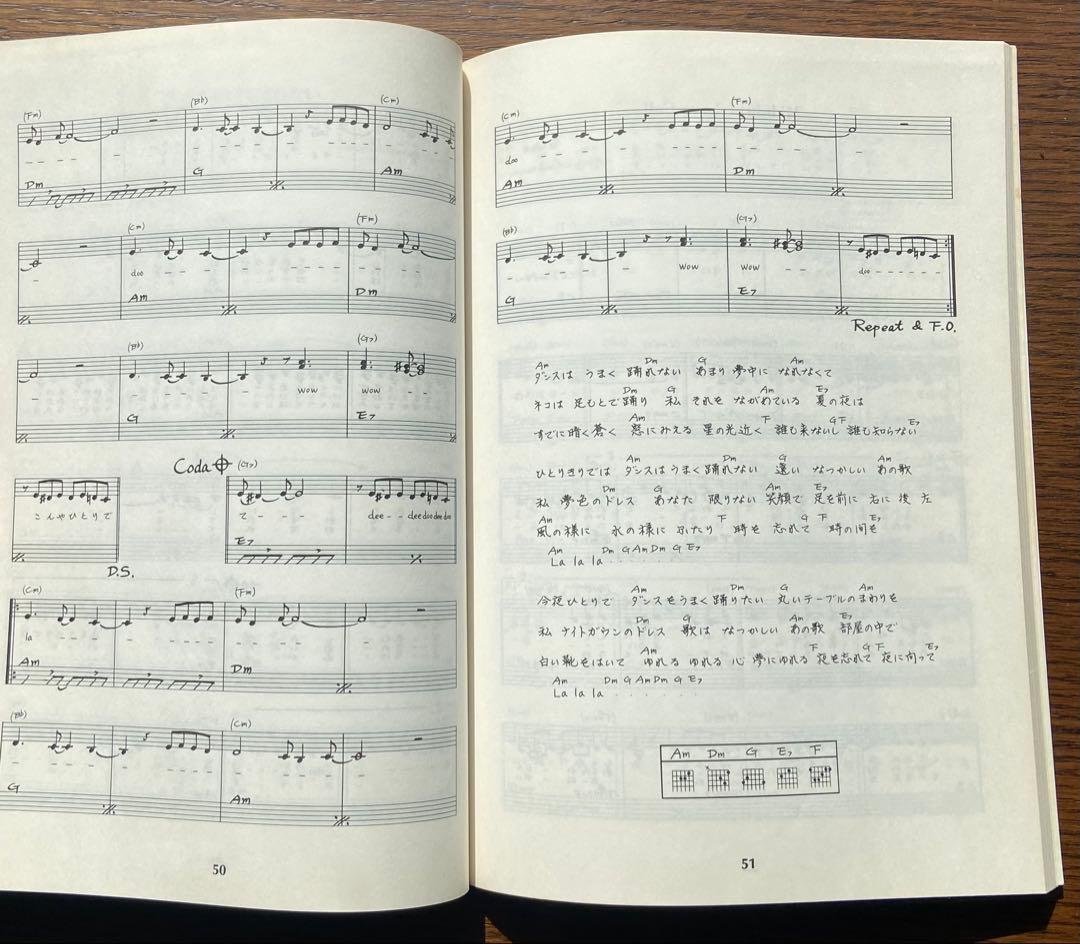 (Fm) (B♭) (Cm)
Dm G Am
(Cm) (Fm)
doo
Am Dm
(B♭) (G7)
wow wow
G E7
Coda (G7)
こんやひとりで て - - - dee - - dee doo dee doo
E7
D.S.
(Cm) (Fm)
la
Am Dm
(B♭) (Cm)
G Am
50
(Cm) (Fm)
doo
Am Dm
(B♭) (G7)
wow wow doo
G E7
Repeat & F.O.
Am Dm G Am
ダンスは うまく 踊れない あまり 夢中に なれなくて
Dm G Am E7
ネコは 足もとで踊り 私 それを ながめている 夏の夜は
Am F G F E7
すでに暗く蒼く 窓にみえる 星の光近く 誰も来ないし 誰も知らない
Am Dm G Am
ひとりきりでは ダンスはうまく踊れない 遠い なつかしい あの歌
Dm G Am E7
私 夢色のドレス あなた 限りない 笑顔で 足を前に 右に 後 左
Am F G F E7
風の様に 水の様に ふたり 時を 忘れて 時の間を
Am Dm G Am Dm G E7
La la la . . . . . .
Am Dm G Am
今夜ひとりで ダンスをうまく踊りたい 丸いテーブルのまわりを
Dm G Am E7
私 ナイトガウンのドレス 歌は なつかしい あの歌 部屋の中で
Am F G F E7
白い靴をはいて ゆれる ゆれる 心 夢にゆれる 夜を忘れて 夜に向って
Am Dm G Am Dm G E7
La la la . . . . . .
Am Dm G E7 F
51